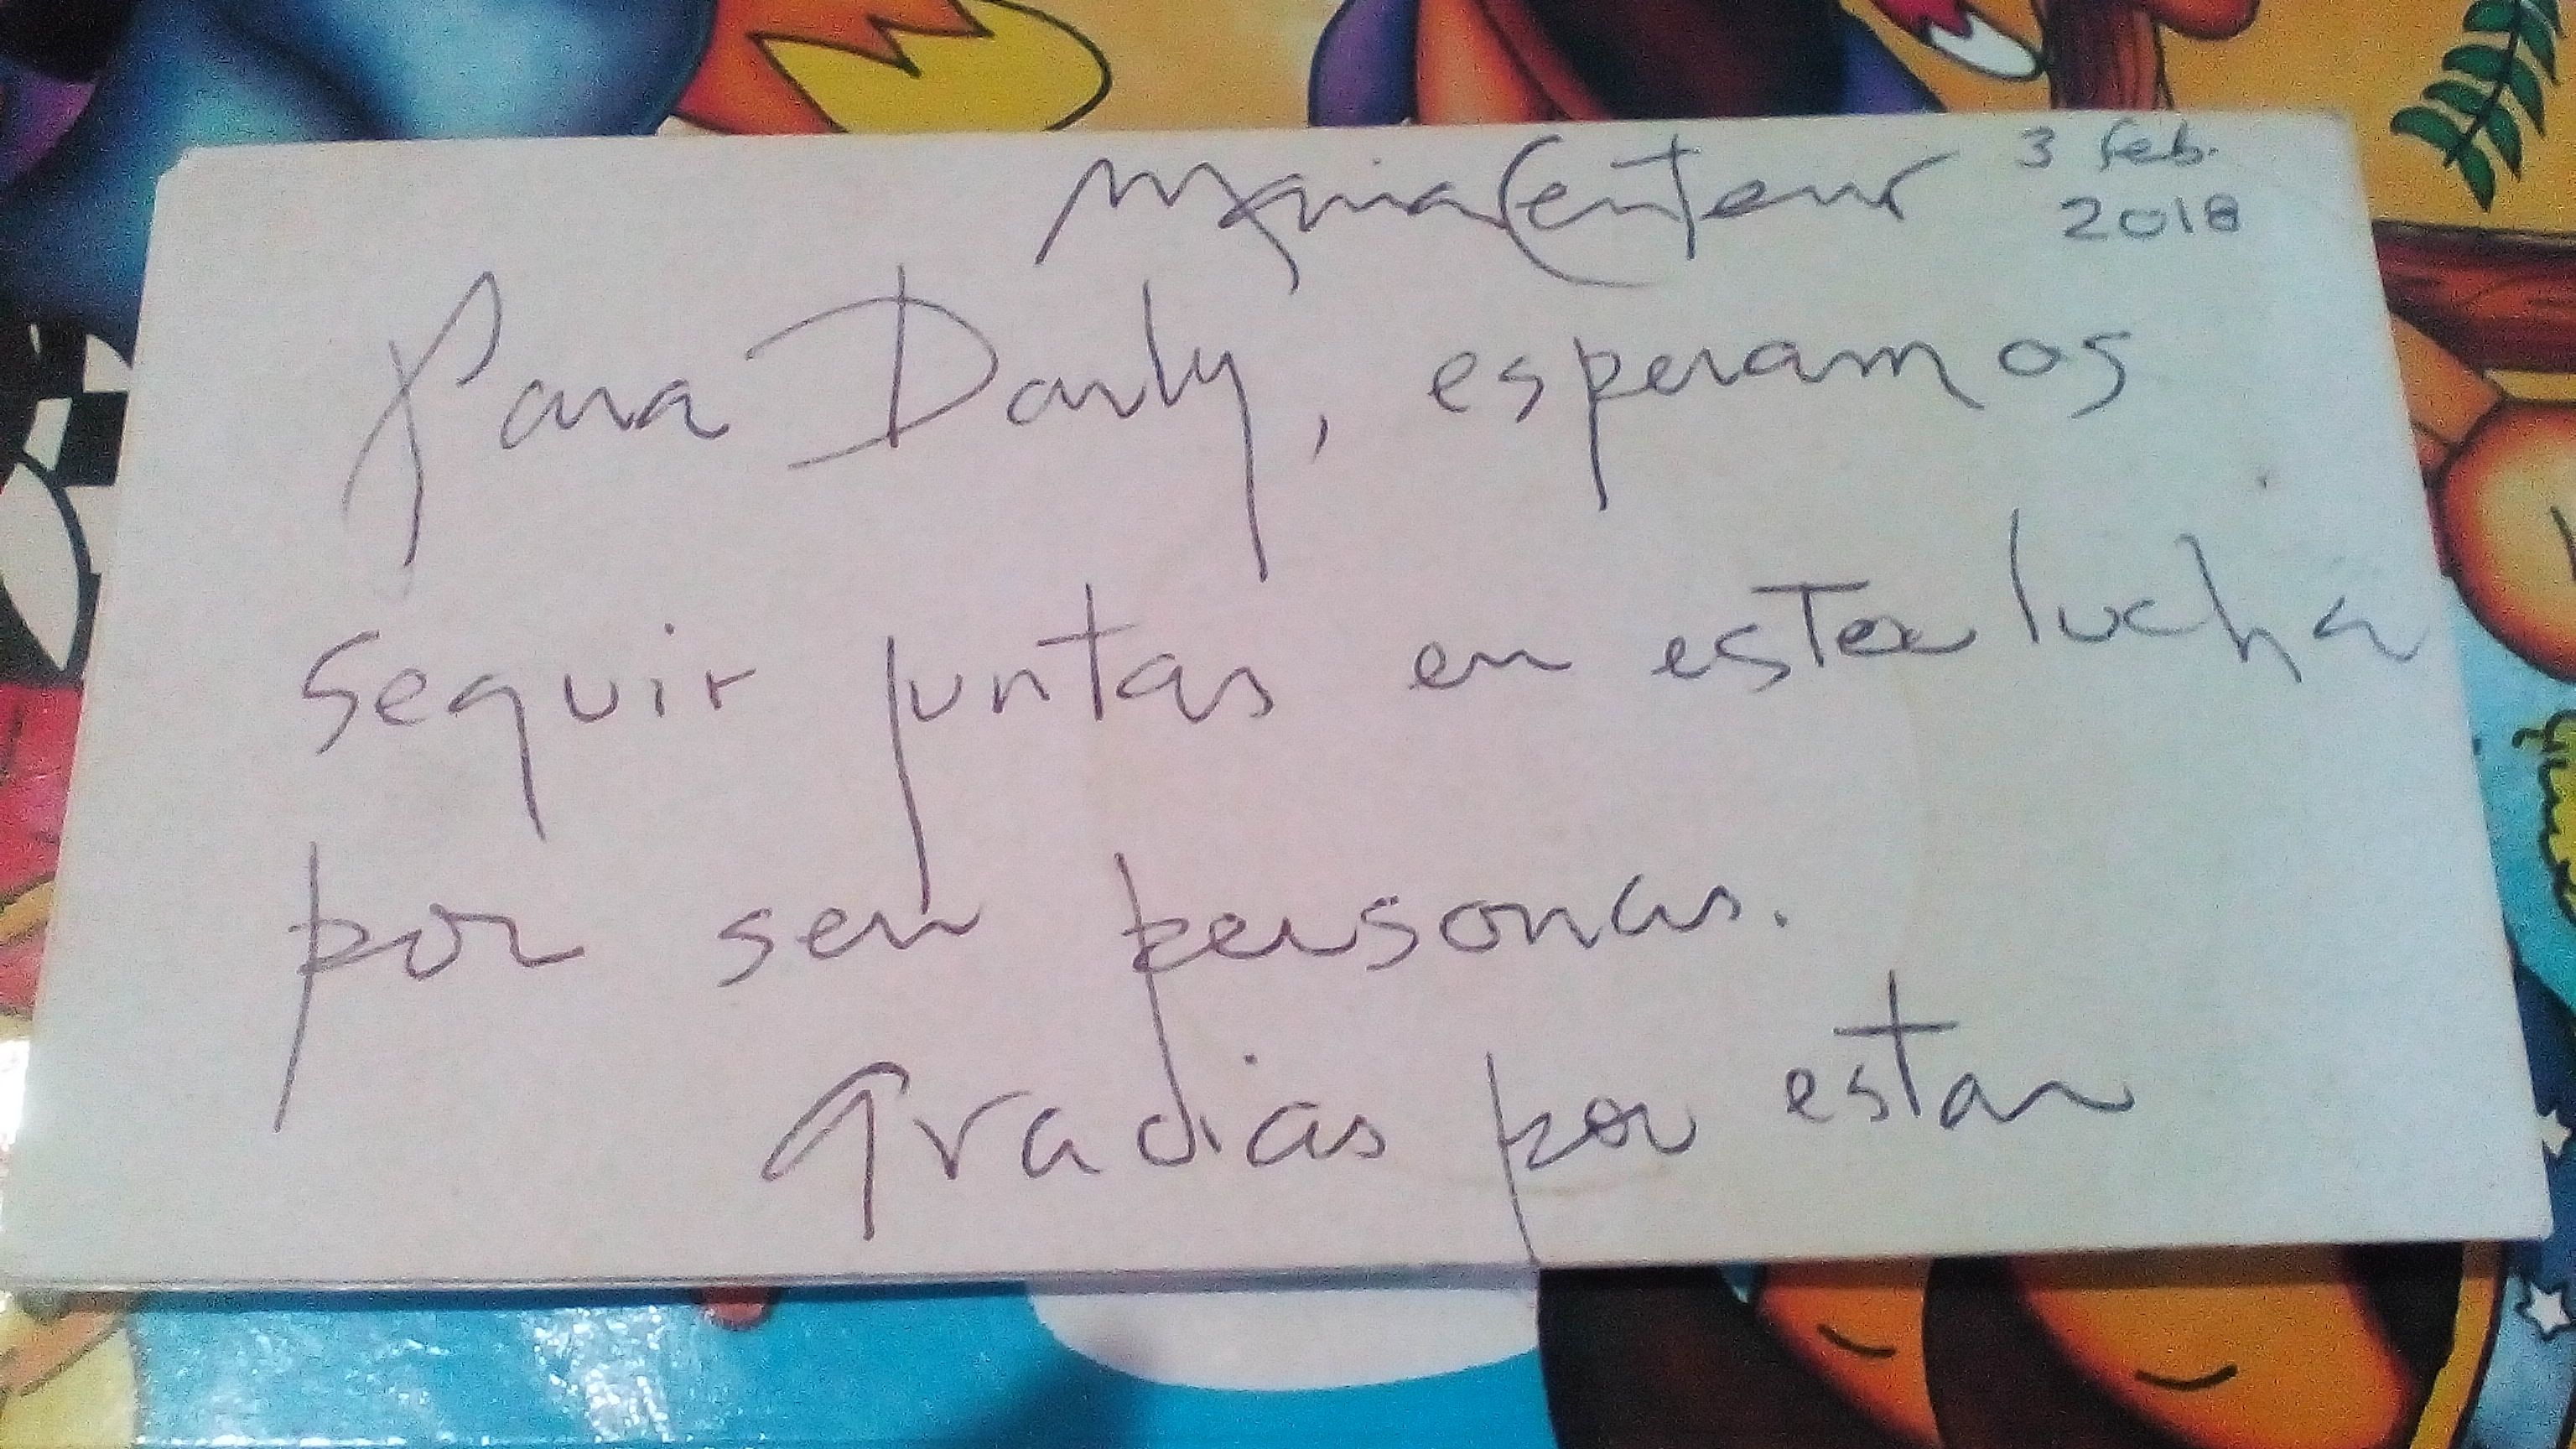 3 feb.
2018
Para Darly, esperamos
seguir juntas en esta lucha
por ser personas.
Gracias por estar